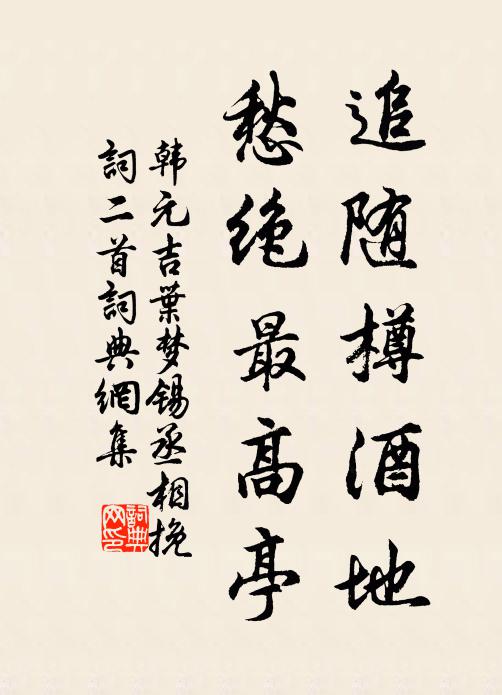 追随樽酒地
愁绝最高亭
韩元吉葉梦锡丞相挽
詞二首詞典網集
詞典
网印